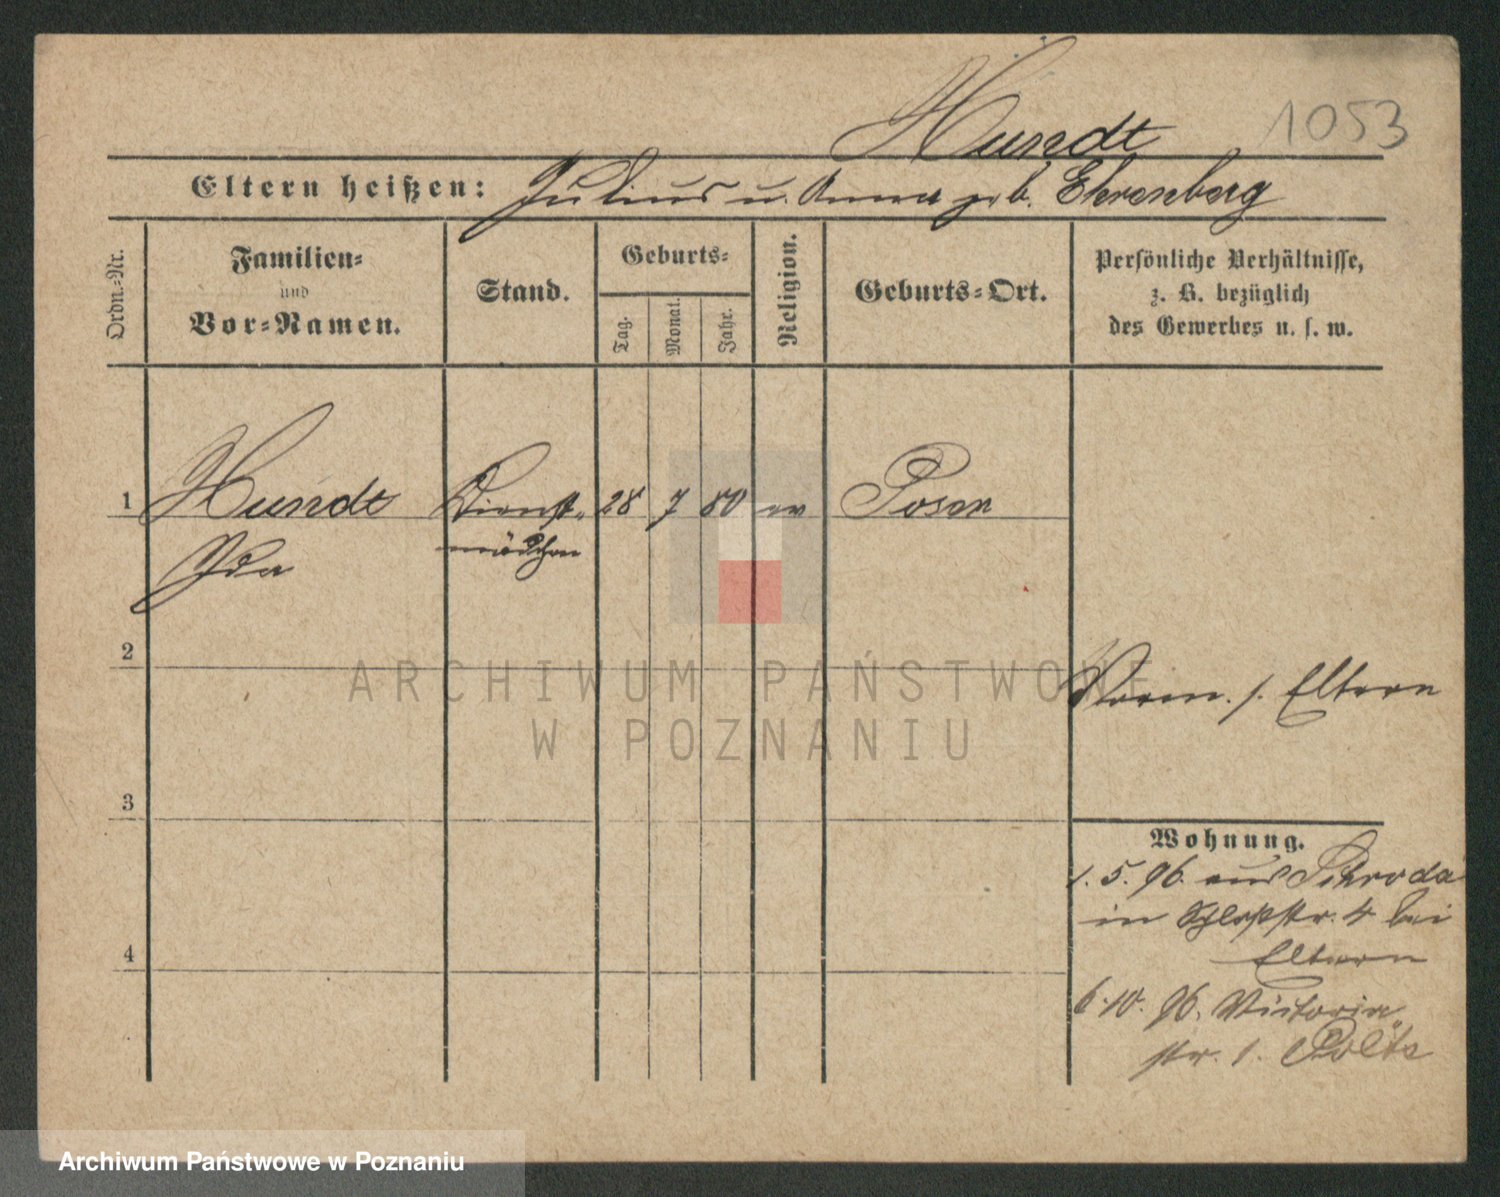 Hundt 1053
Eltern heißen: Julius u. Anna geb. Ehrenberg
Ordn.-Nr.
Familien-
und
Vor-Namen.
Stand.
Geburts-
Tag.
Monat.
Jahr.
Religion.
Geburts-Ort.
Persönliche Verhältnisse,
z. B. bezüglich
des Gewerbes u. s. w.
1 Hundt Dienst- 28 7 80 ev Posen
Ida mädchen
2
ARCHIWUM PAŃSTWOWE
W POZNANIU
Eltern
3
Wohnung.
1. 5. 96. aus Schroda
in Schloßstr. 4 bei
Eltern
4
6. 10. 96. Victoria
str. 1.
Archiwum Państwowe w Poznaniu